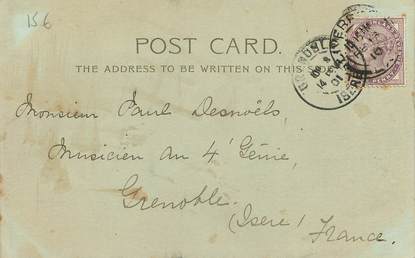 156
POST CARD.
THE ADDRESS TO BE WRITTEN ON THIS SIDE
Monsieur Paul Desnoëls,
Musicien au 4e Génie,
Grenoble.
(Isère) France.
ISERE